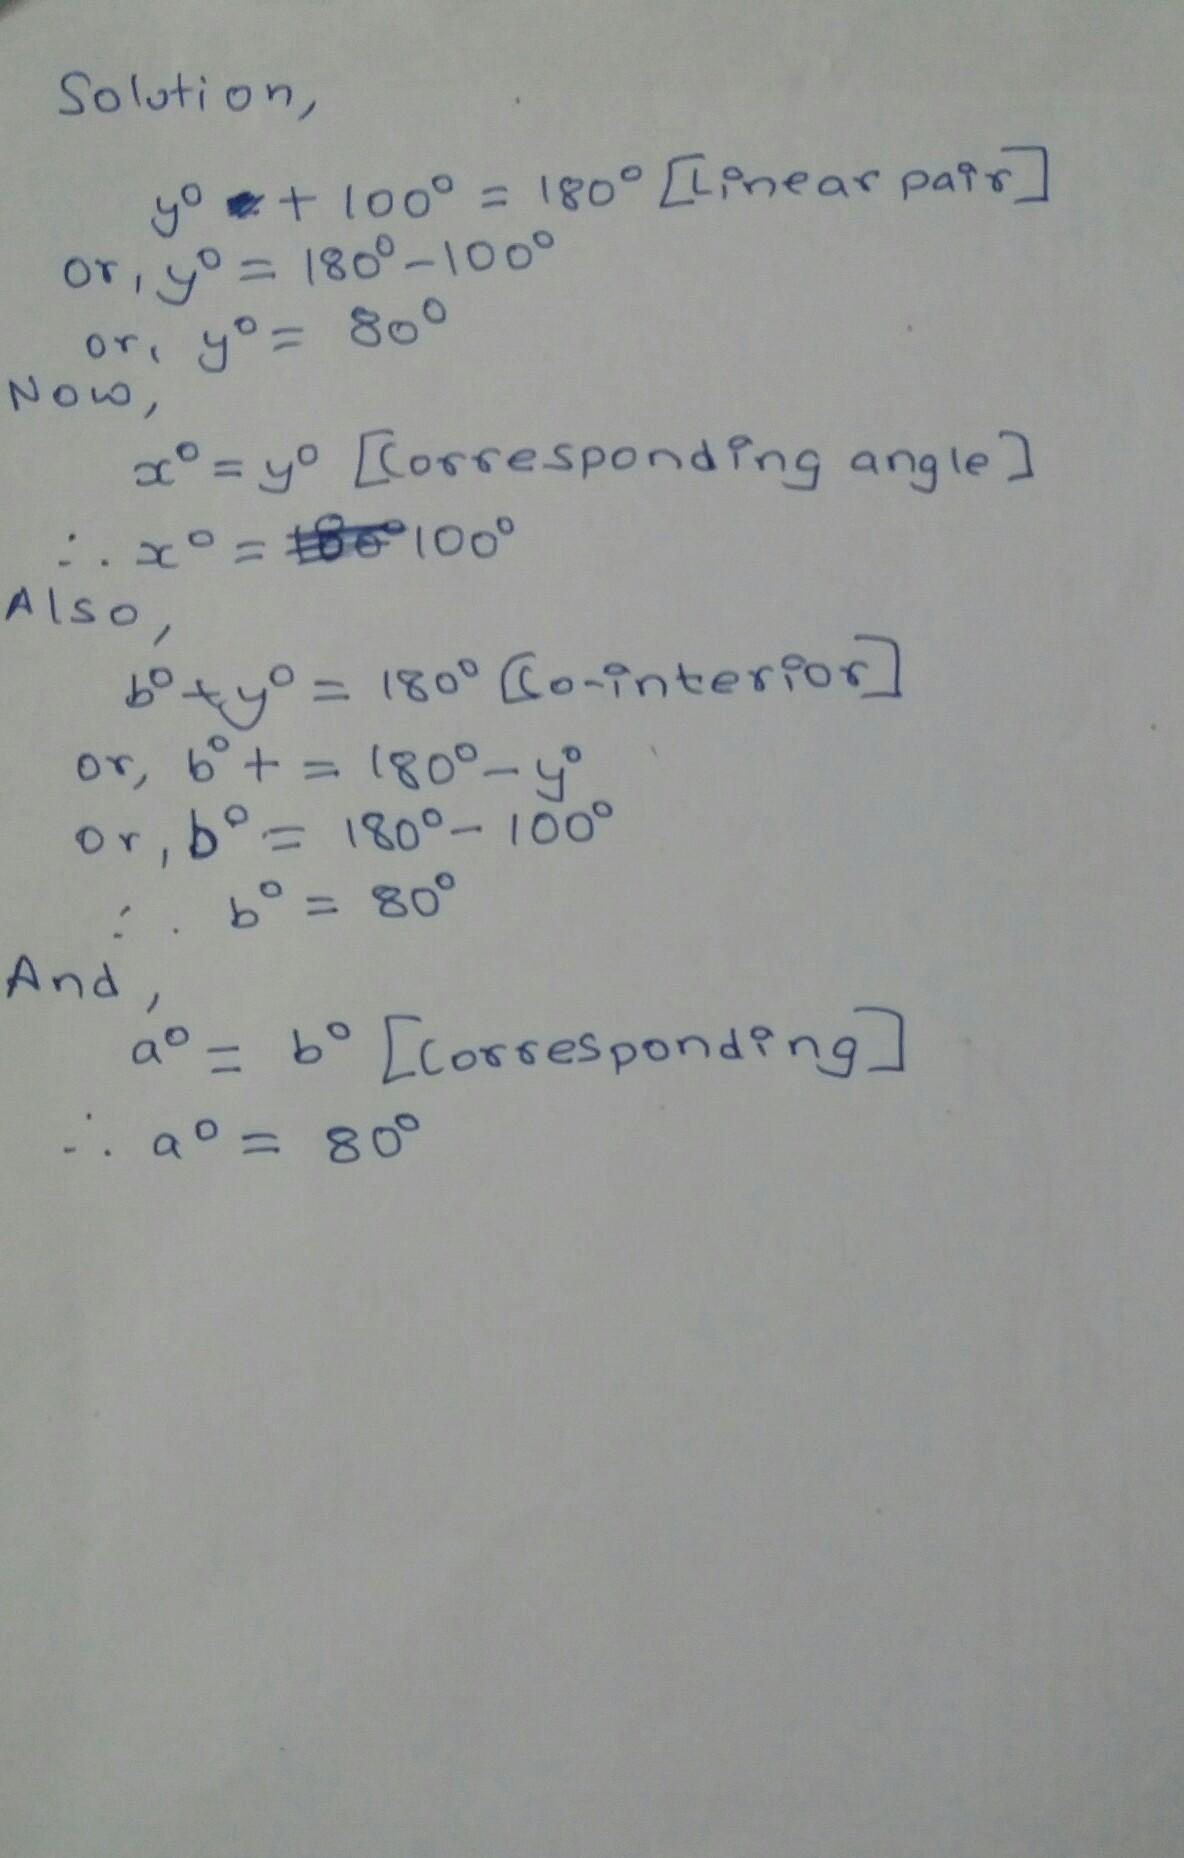 Solution,
y° + 100° = 180° [Linear pair]
or, y° = 180° - 100°
or, y° = 80°
Now,
x° = y° [Corresponding angle]
∴ x° = 100°
Also,
b° + y° = 180° [Co-interior]
or, b° + = 180° - y°
or, b° = 180° - 100°
∴ b° = 80°
And,
a° = b° [Corresponding]
∴ a° = 80°